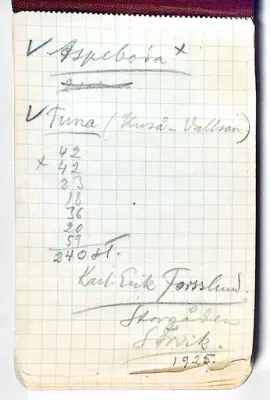 ✓ Aspeboda x
✓ Tuna (Kuså - Vallsån)
42
x 42
23
18
36
20
59
240 st.
Karl-Erik Forsslund.
Storgården
1925.